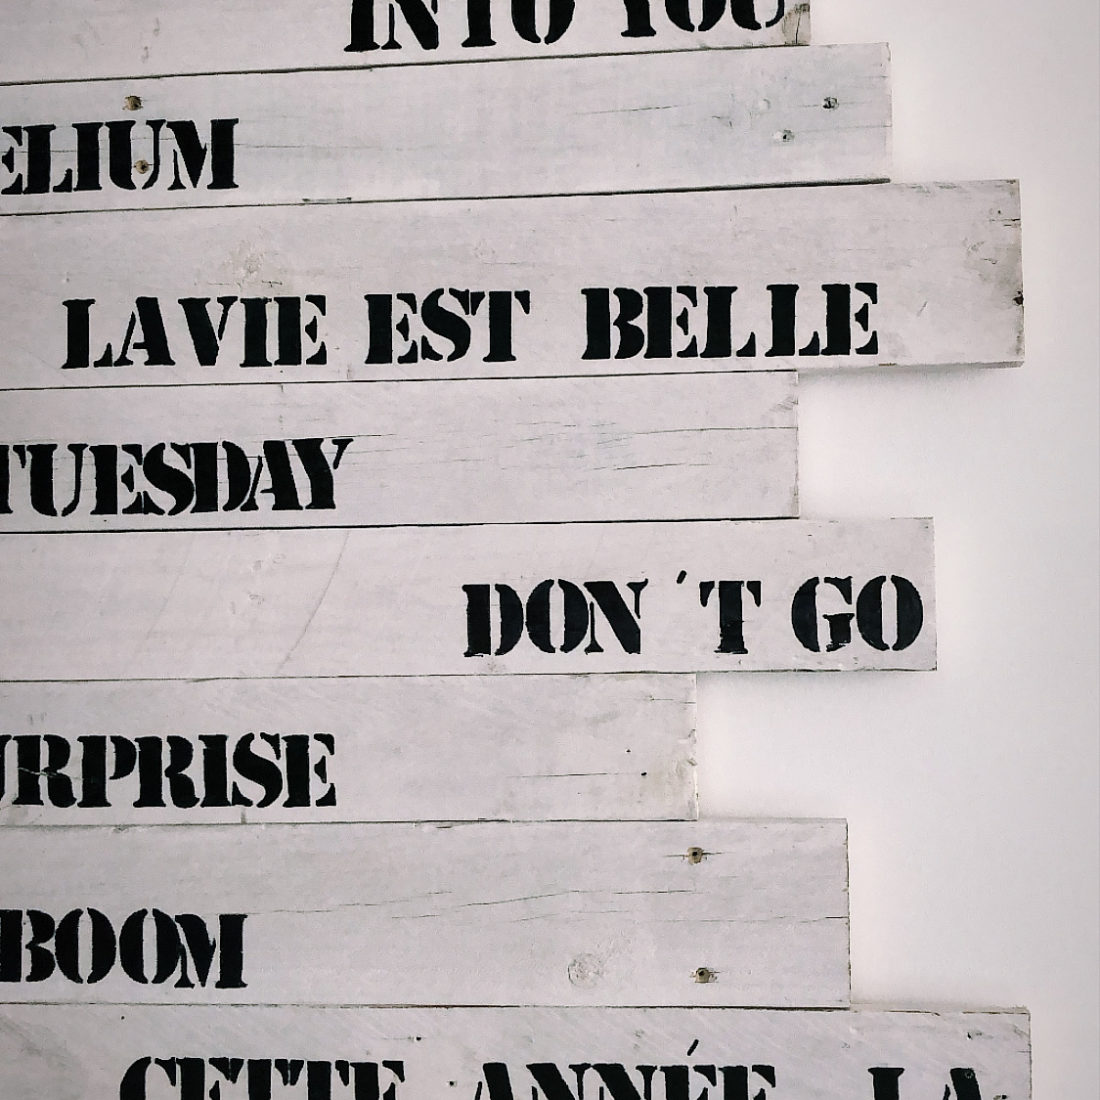 INTO YOU
ELIUM
LA VIE EST BELLE
TUESDAY
DON´T GO
URPRISE
BOOM
CETTE ANNÉE LA